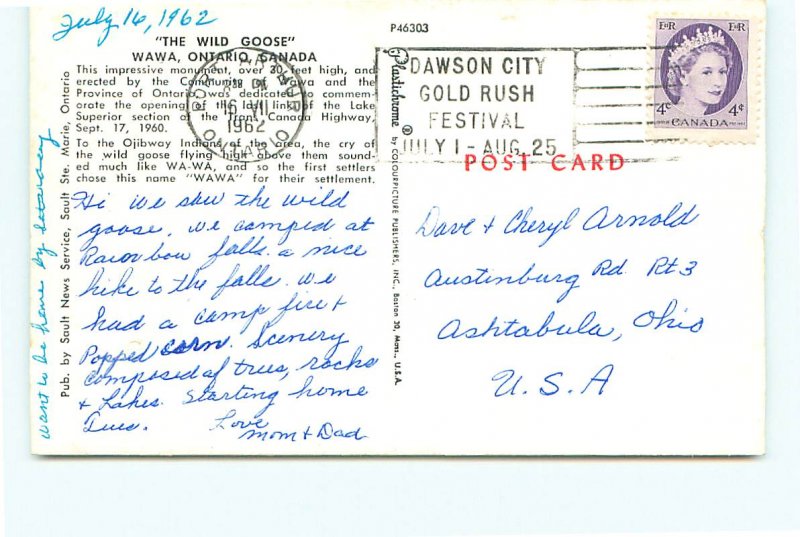 July 16, 1962
P46303
"THE WILD GOOSE"
WAWA, ONTARIO, CANADA
This impressive monument, over 30 feet high, and
erected by the Community of Wawa and the
Province of Ontario, was dedicated to commem-
orate the opening of the last link of the Lake
Superior section of the Trans Canada Highway,
Sept. 17, 1960.
To the Ojibway Indians of the area, the cry of
the wild goose flying high above them sound-
ed much like WA-WA, and so the first settlers
chose this name "WAWA" for their settlement.
Hi we saw the wild
goose. we camped at
Rainbow falls. a nice
hike to the falls. we
had a camp fire +
Popped corn. Scenery
composed of trees, rocks
+ Lakes. Starting home
Tues. Love
Mom + Dad
want to be home by saturday
Pub. by Sault News Service, Sault Ste. Marie, Ontario
Plastichrome ® by COLOURPICTURE PUBLISHERS, INC., Boston 30, Mass., U.S.A.
16 VII
1962
ONTARIO
DAWSON CITY
GOLD RUSH
FESTIVAL
JULY 1 - AUG. 25
E II R E II R
4¢ 4¢
CANADA
POST CARD
Dave + Cheryl Arnold
Austinburg Rd. Rt 3
Ashtabula, Ohio
U.S.A